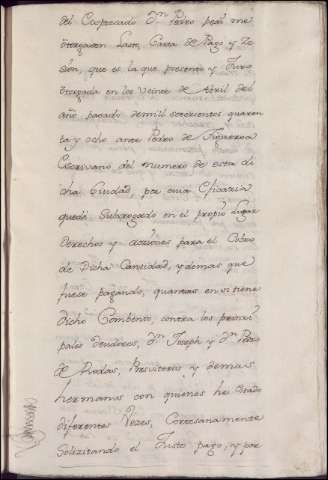 del Expresado Dn. Pedro para me
Otorgasen Lasto, Carta de Pago y Ze
sion, que es la que presento y Juro
Otorgada en los Veinte de Abril del
año pasado de mil setecientos quaren
ta y ocho ante Pedro de Figueroa
Escrivano del numero de esta di
cha Ciudad, por cuia
quedé Subrogado en el propio Lugar
Derechos y acciones para el Cobro
de Dicha Cantidad, y demas que
fuese pagando, quantas en si tiene
dicho Combento, contra los prinzi
pales deudores, Dn. Joseph y Dn. Pedro
de Rodas, Presviteros y demas
hermanos con quienes he estado
diferentes Vezes, Cortesanamente
Solizitando el Justo pago, y por